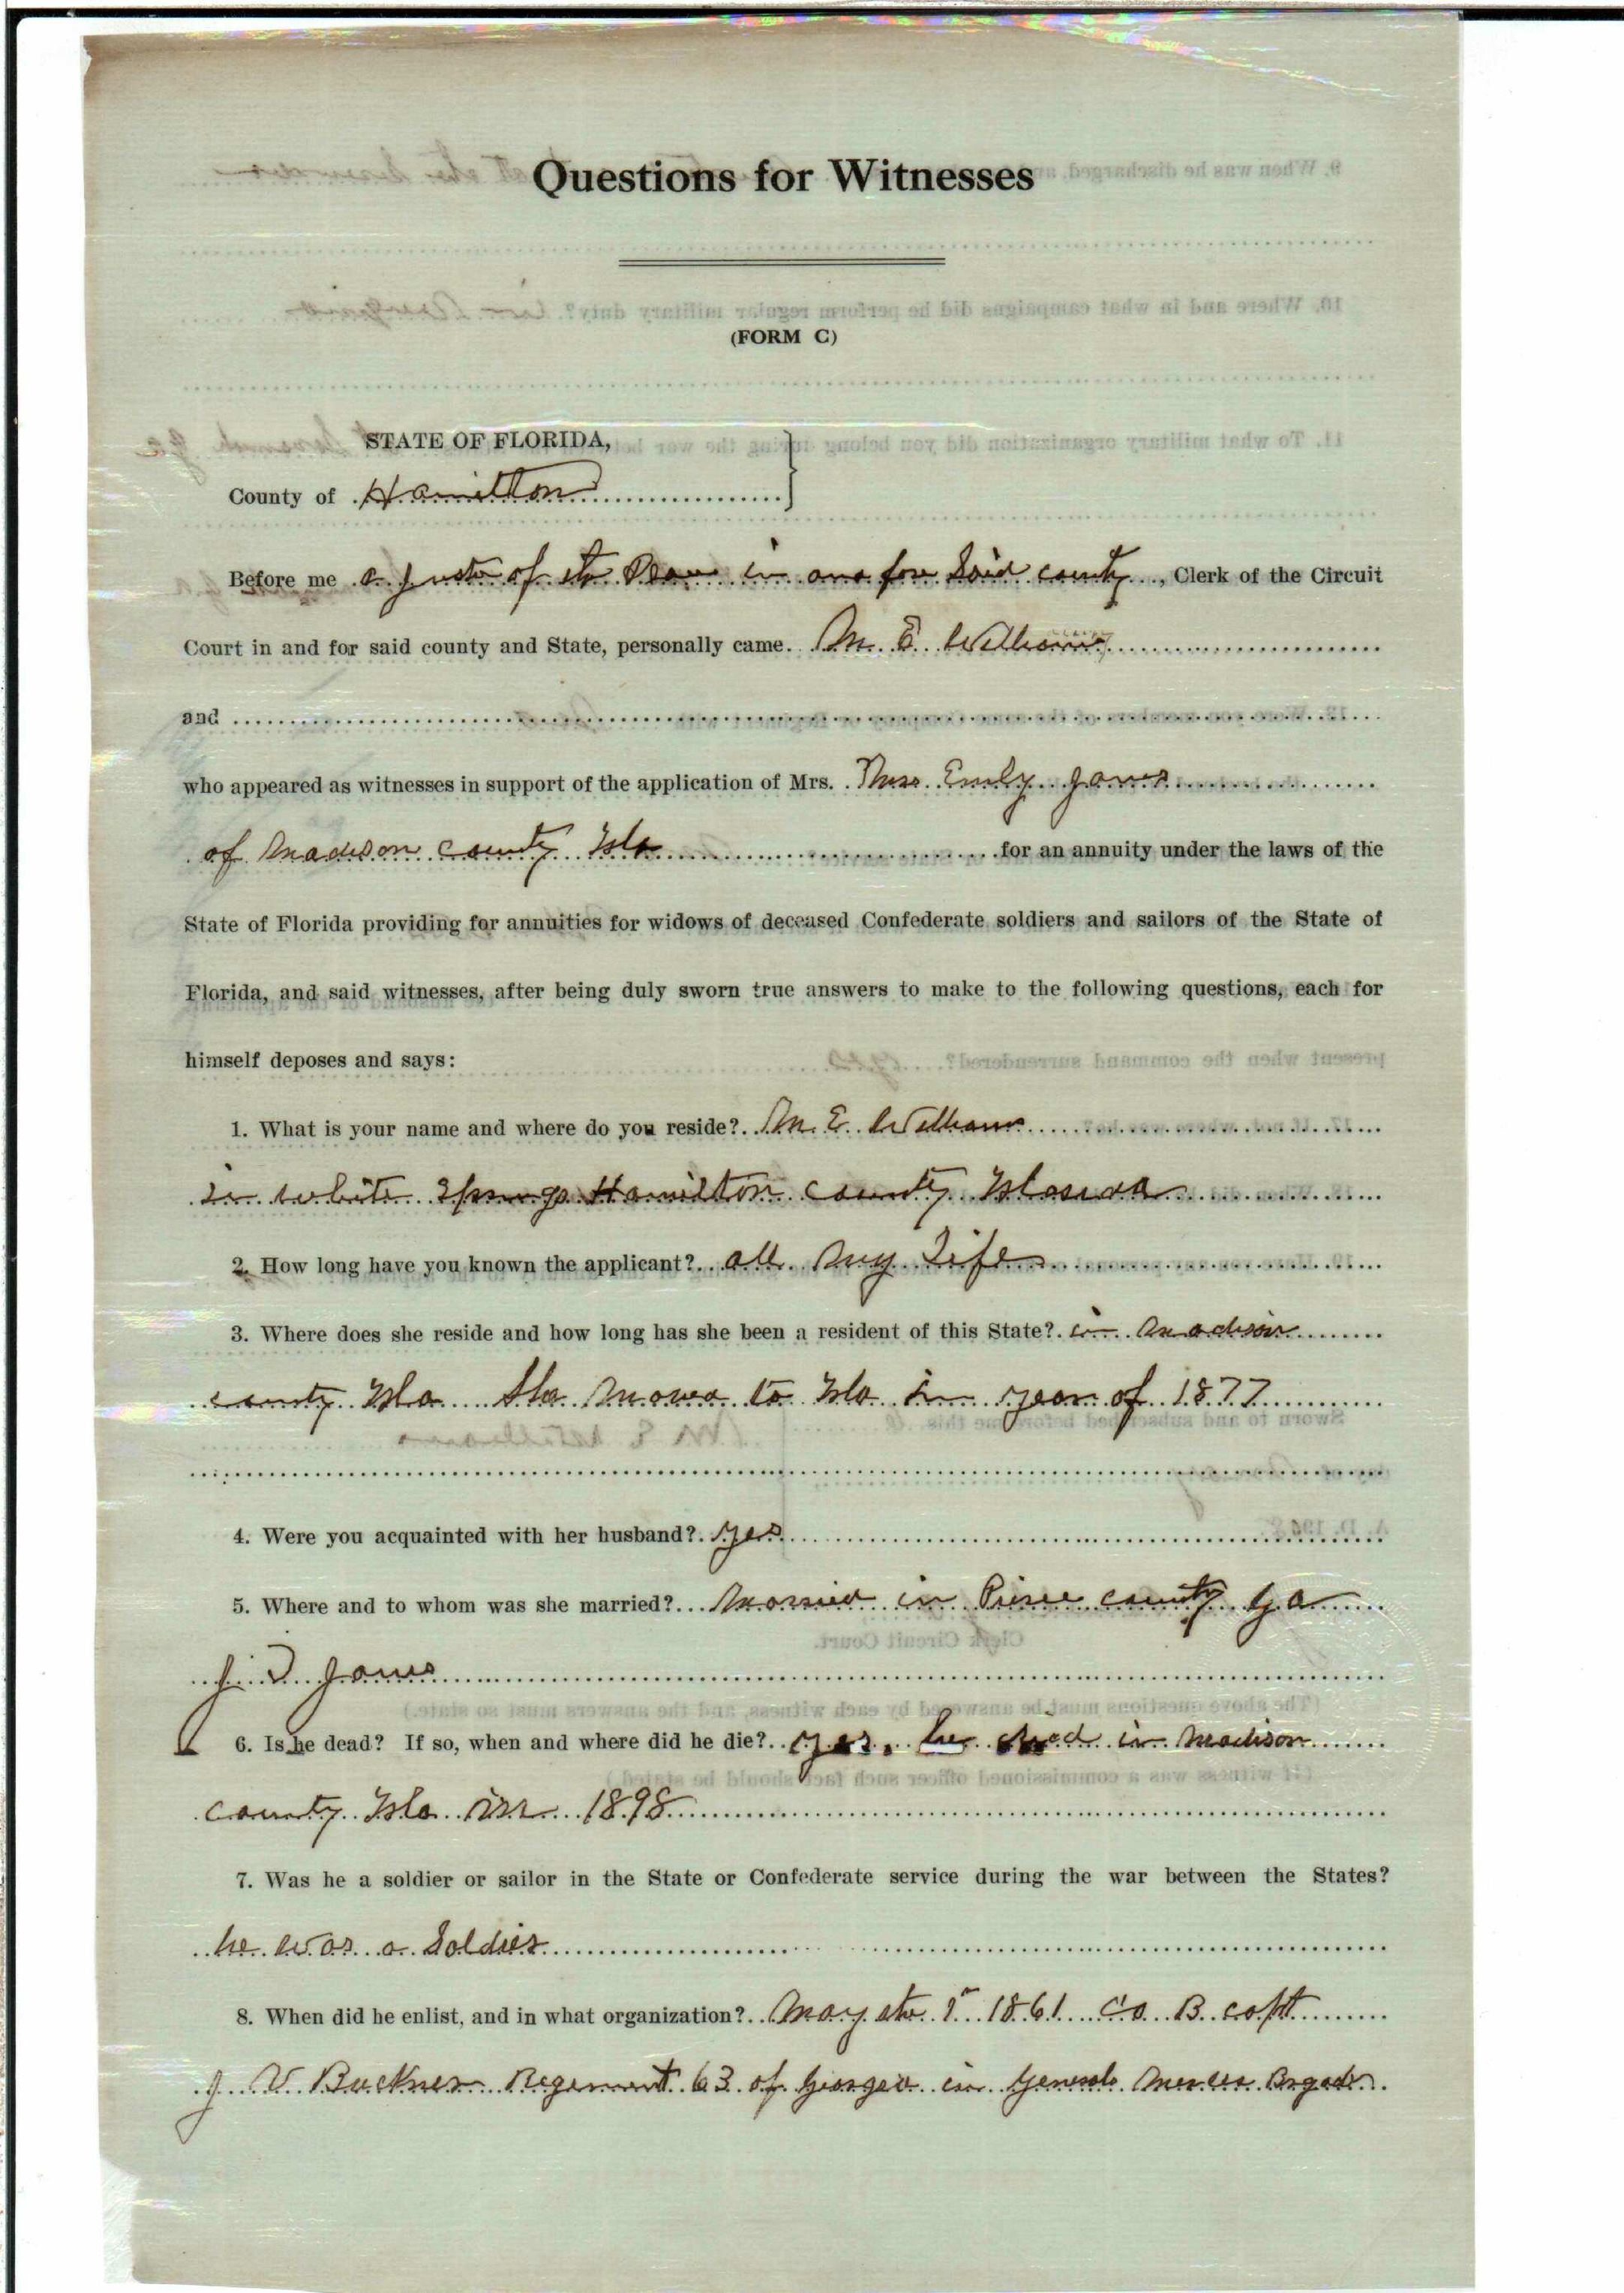 Questions for Witnesses
(FORM C)
STATE OF FLORIDA,
County of Hamilton
Before me a juste of the Peace in and for Said county, Clerk of the Circuit
Court in and for said county and State, personally came M. E Williams
and
who appeared as witnesses in support of the application of Mrs. Mrs. Emily Jones
of Madison county Fla for an annuity under the laws of the
State of Florida providing for annuities for widows of deceased Confederate soldiers and sailors of the State of
Florida, and said witnesses, after being duly sworn true answers to make to the following questions, each for
himself deposes and says:
1. What is your name and where do you reside? M. E. Williams
in white Springs Hamilton county Florida
2. How long have you known the applicant? all my Life
3. Where does she reside and how long has she been a resident of this State? in Madison
county Fla She moved to Fla in year of 1877
4. Were you acquainted with her husband? yes
5. Where and to whom was she married? Married in Pierce county Ga
J. D. Jones
6. Is he dead? If so, when and where did he die? yes, he died in Madison
county Fla in 1898
7. Was he a soldier or sailor in the State or Confederate service during the war between the States?
he was a Soldier
8. When did he enlist, and in what organization? May the 1861 Co. B. capt
J V Buckner Regement 63 of Georgia in Generals Merces Brgade